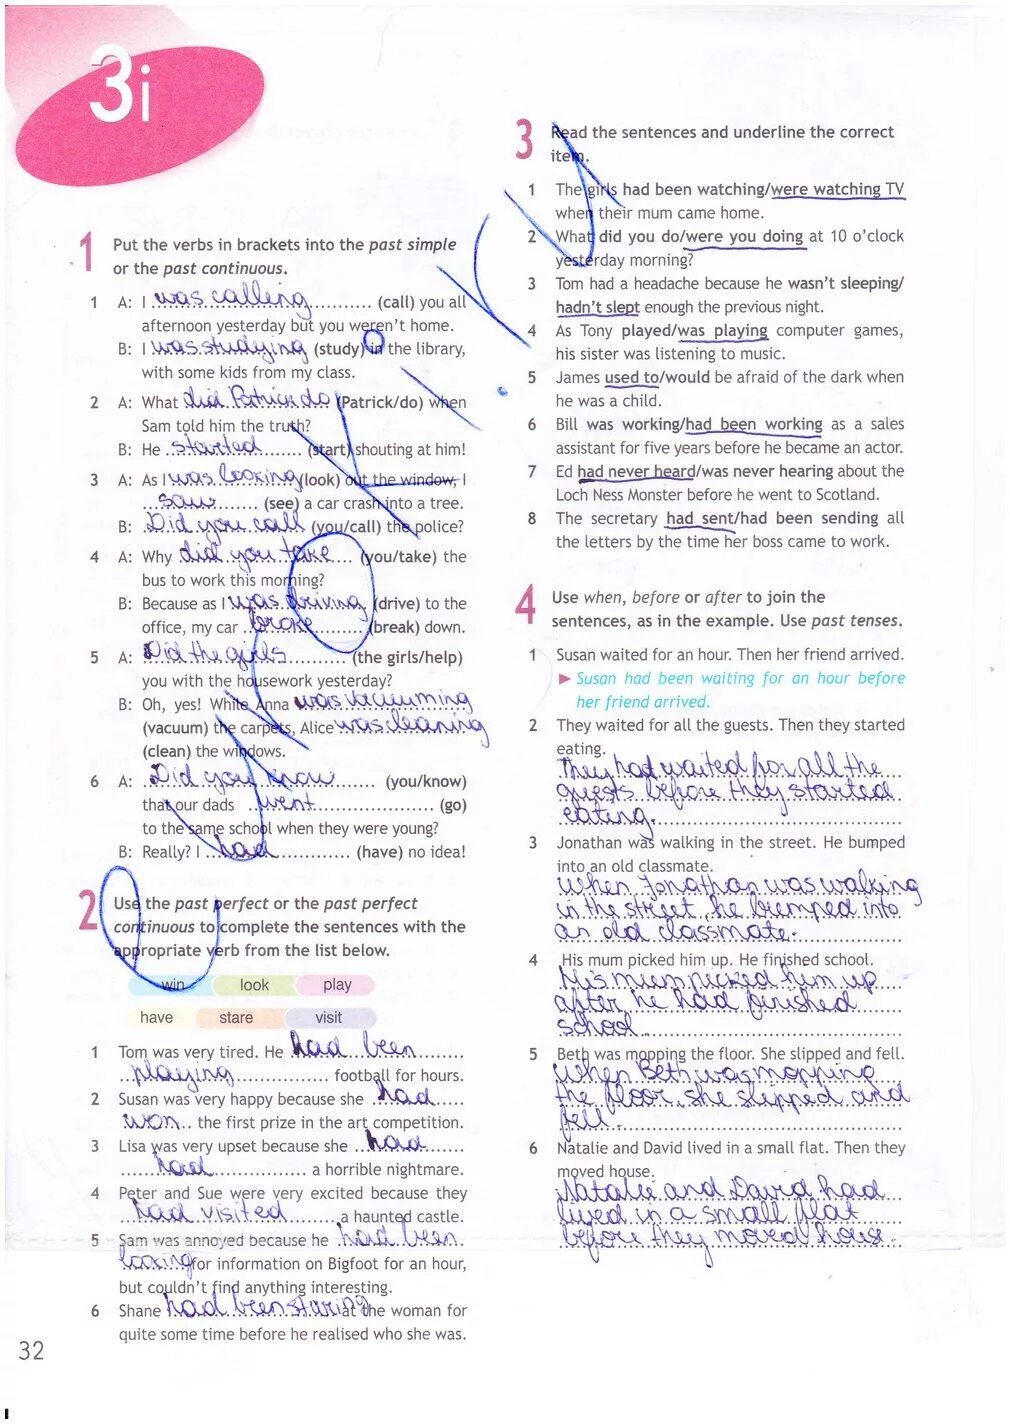 3i
1 Put the verbs in brackets into the past simple
or the past continuous.
1 A: I was calling (call) you all
afternoon yesterday but you weren't home.
B: I was studying (study) in the library,
with some kids from my class.
2 A: What did Patrick do (Patrick/do) when
Sam told him the truth?
B: He started (start) shouting at him!
3 A: As I was looking (look) out the window, I
saw (see) a car crash into a tree.
B: Did you call (you/call) the police?
4 A: Why did you take (you/take) the
bus to work this morning?
B: Because as I was driving (drive) to the
office, my car broke (break) down.
5 A: Did the girls (the girls/help)
you with the housework yesterday?
B: Oh, yes! While Anna was vacuuming
(vacuum) the carpets, Alice was cleaning
(clean) the windows.
6 A: Did you know (you/know)
that our dads went (go)
to the same school when they were young?
B: Really? I had (have) no idea!
2 Use the past perfect or the past perfect
continuous to complete the sentences with the
appropriate verb from the list below.
win look play
have stare visit
1 Tom was very tired. He had been
playing football for hours.
2 Susan was very happy because she had
won the first prize in the art competition.
3 Lisa was very upset because she had
had a horrible nightmare.
4 Peter and Sue were very excited because they
had visited a haunted castle.
5 Sam was annoyed because he had been
looking for information on Bigfoot for an hour,
but couldn't find anything interesting.
6 Shane had been staring at the woman for
quite some time before he realised who she was.
32
3 Read the sentences and underline the correct
item.
1 The girls had been watching/were watching TV
when their mum came home.
2 What did you do/were you doing at 10 o'clock
yesterday morning?
3 Tom had a headache because he wasn't sleeping/
hadn't slept enough the previous night.
4 As Tony played/was playing computer games,
his sister was listening to music.
5 James used to/would be afraid of the dark when
he was a child.
6 Bill was working/had been working as a sales
assistant for five years before he became an actor.
7 Ed had never heard/was never hearing about the
Loch Ness Monster before he went to Scotland.
8 The secretary had sent/had been sending all
the letters by the time her boss came to work.
4 Use when, before or after to join the
sentences, as in the example. Use past tenses.
1 Susan waited for an hour. Then her friend arrived.
► Susan had been waiting for an hour before
her friend arrived.
2 They waited for all the guests. Then they started
eating.
They had waited for all the
guests before they started
eating.
3 Jonathan was walking in the street. He bumped
into an old classmate.
When Jonathan was walking
in the street, he bumped into
an old classmate.
4 His mum picked him up. He finished school.
His mum picked him up
after he had finished
school.
5 Beth was mopping the floor. She slipped and fell.
When Beth was mopping
the floor, she slipped and
fell.
6 Natalie and David lived in a small flat. Then they
moved house.
Natalie and David had
lived in a small flat
before they moved house.